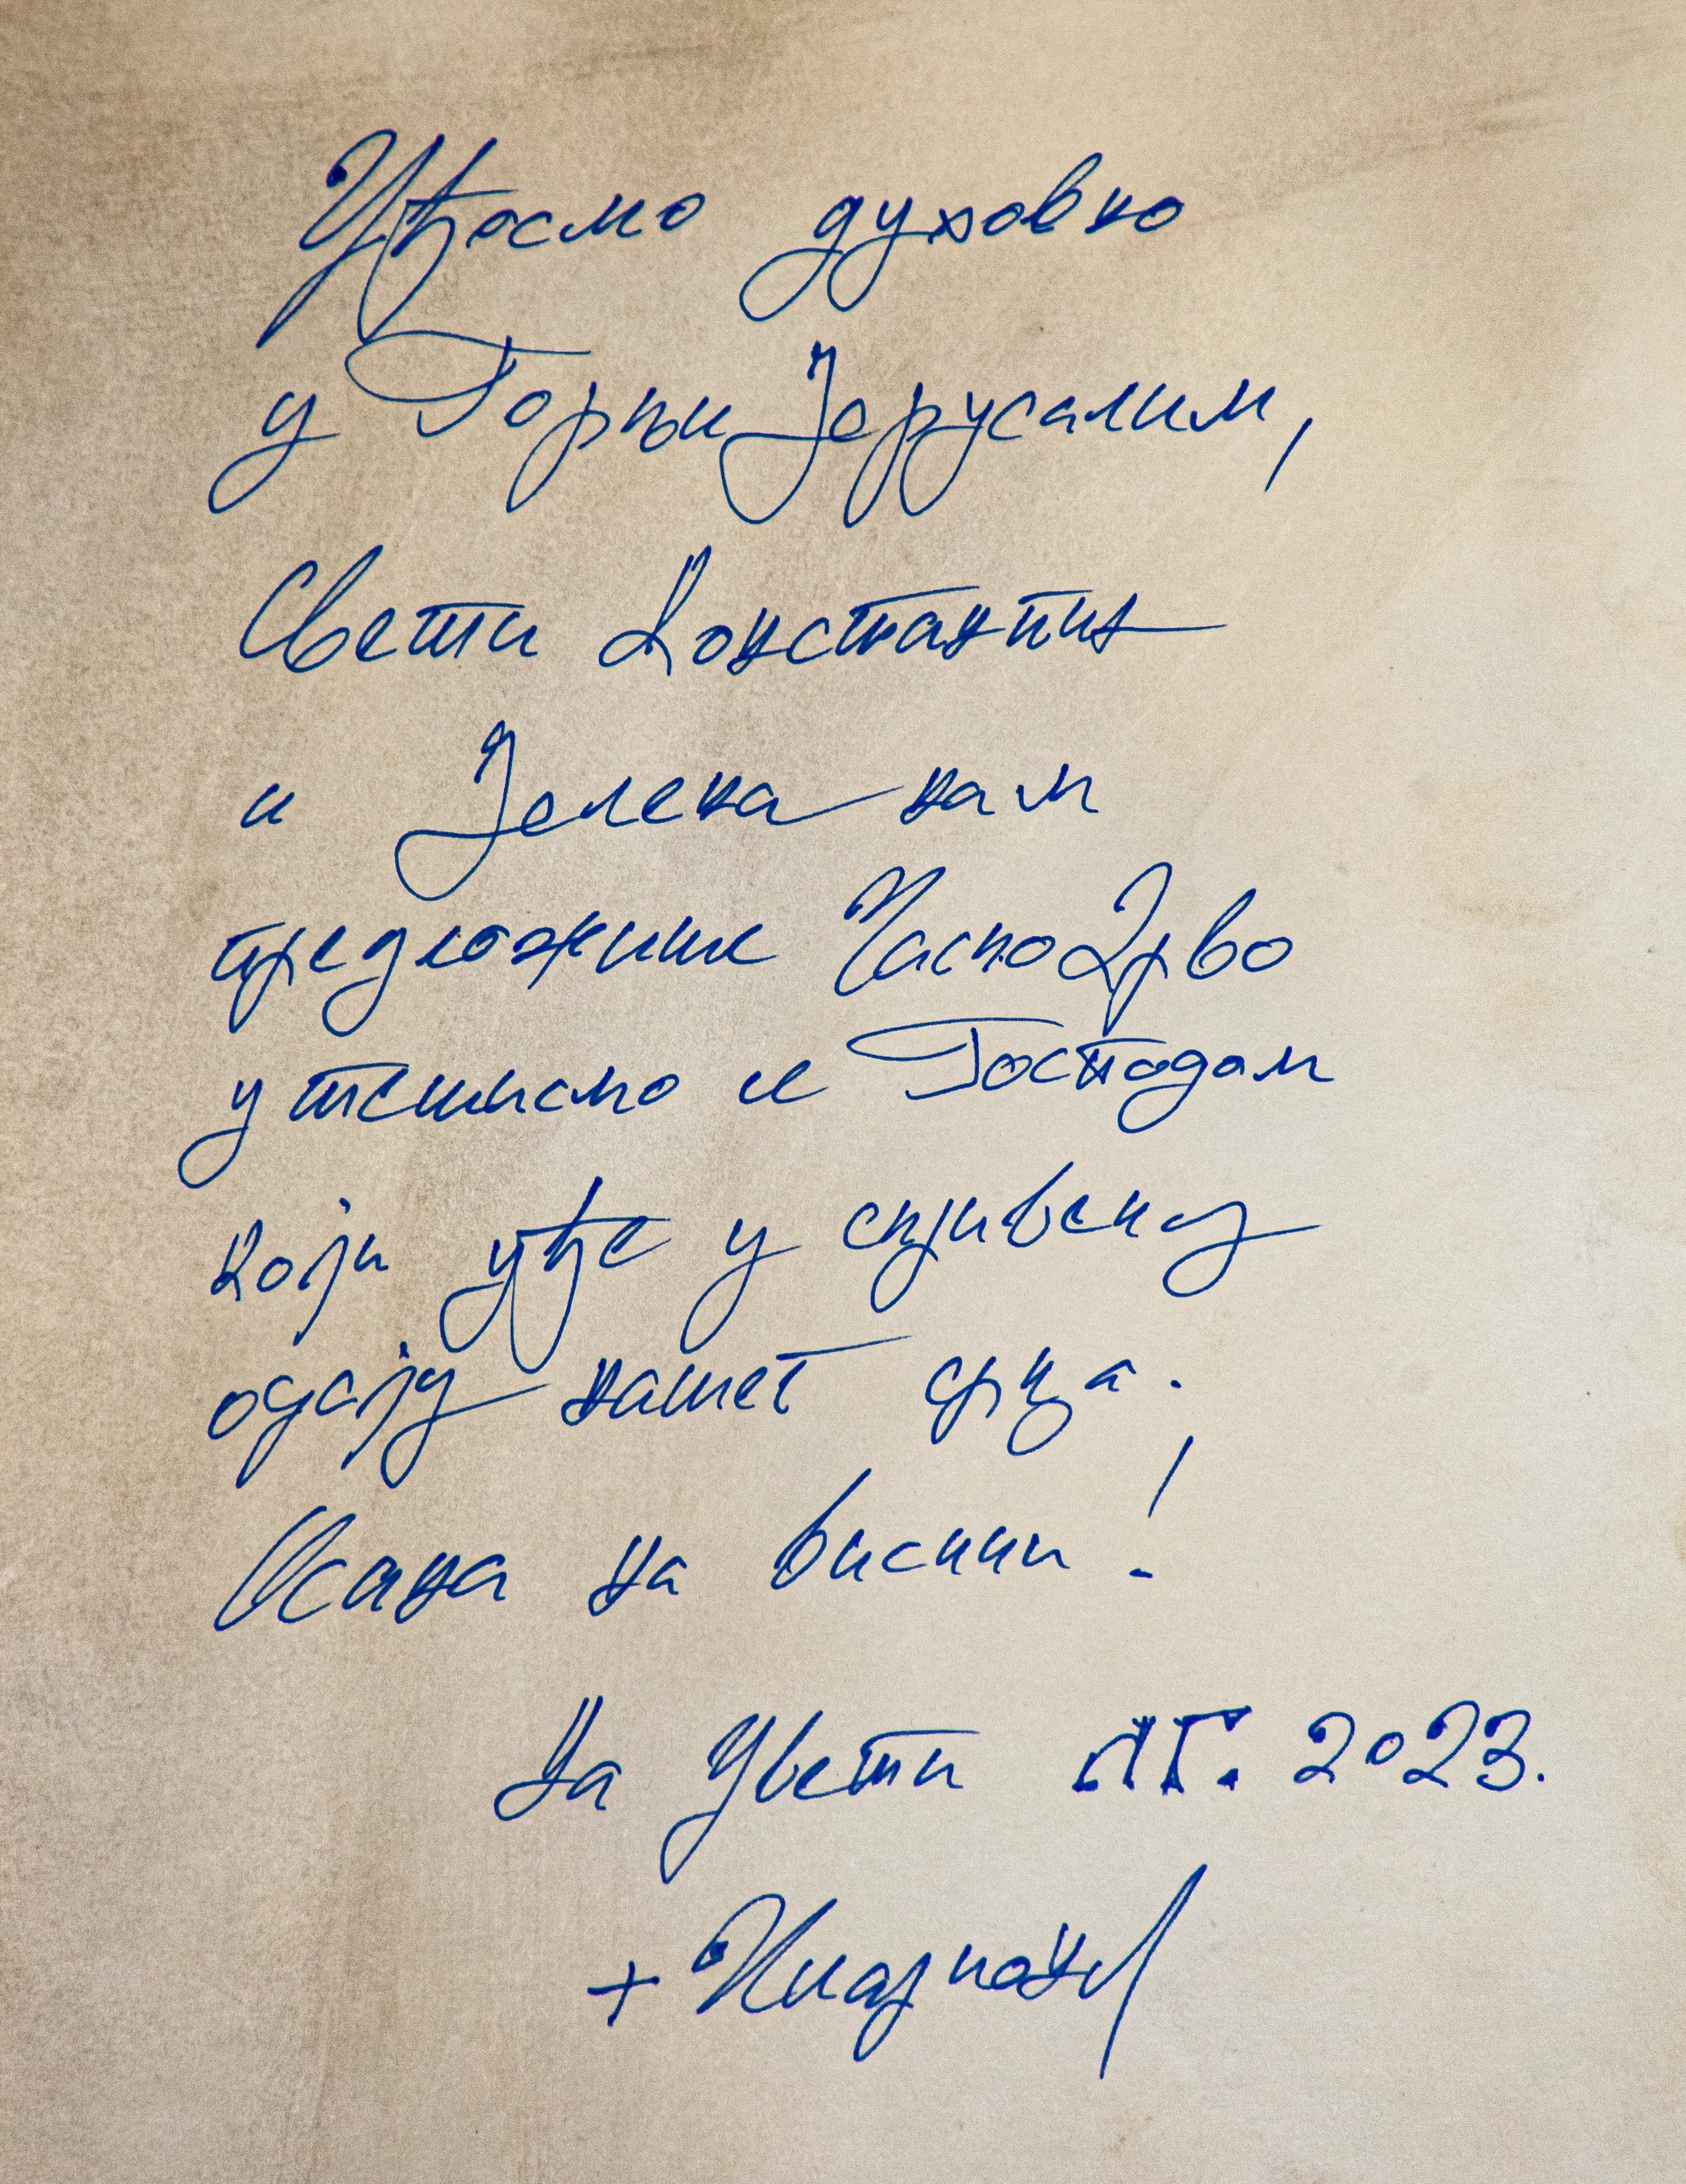 Уђосмо духовно
у Горњи Јерусалим,
Свети Константин
и Јелена нам
предложише Часно Дрво
утешисмо се Господом
који уђе у скривену
одају нашег срца.
Осана на висини!
На Цвети ЛГ. 2023.